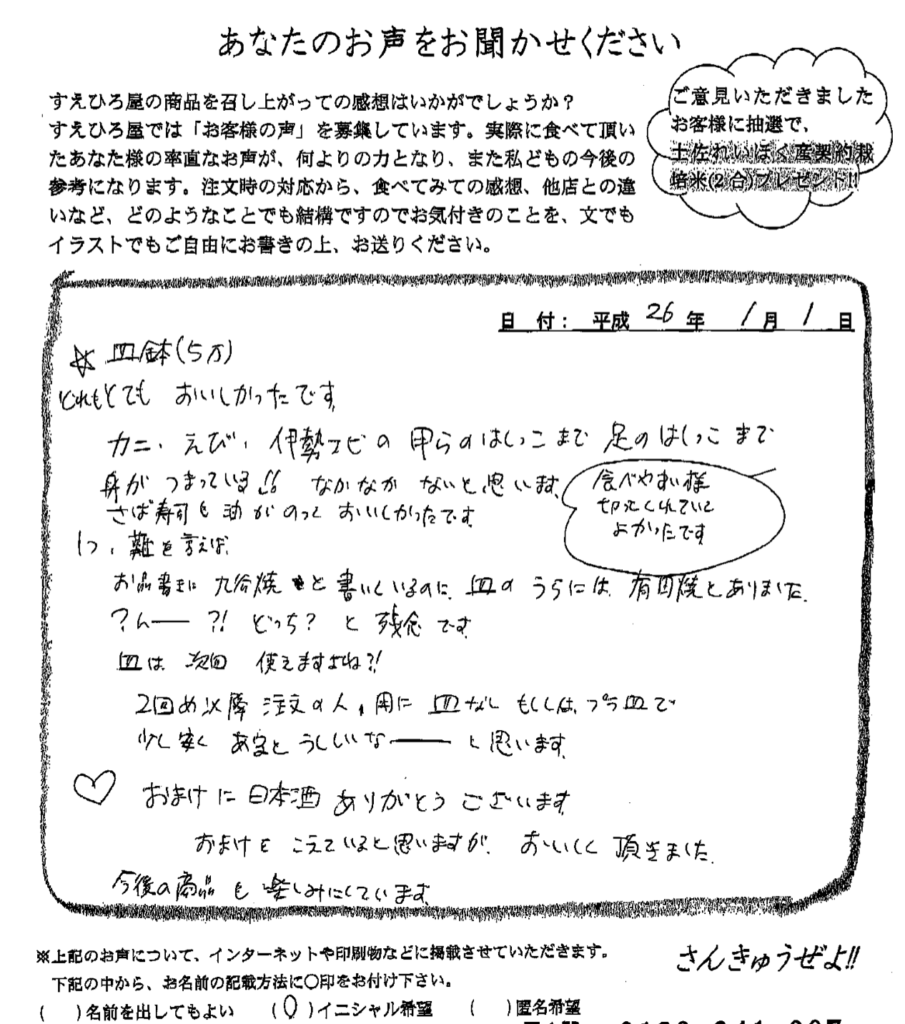 あなたのお声をお聞かせください
すえひろ屋の商品を召し上がっての感想はいかがでしょうか？
すえひろ屋では「お客様の声」を募集しています。実際に食べて頂い
たあなた様の率直なお声が、何よりの力となり、また私どもの今後の
参考になります。注文時の対応から、食べてみての感想、他店との違
いなど、どのようなことでも結構ですのでお気付きのことを、文でも
イラストでもご自由にお書きの上、お送りください。
ご意見いただきました
お客様に抽選で、
土佐れいほく産契約栽
培米(2合)プレゼント!!
日 付： 平成 26 年 1 月 1 日
☆ 皿鉢(5万)
どれもとても おいしかったです。
カニ、えび、伊勢エビの 甲らのはしっこまで 足のはしっこまで
身が つまっている!! なかなか ないと思います。
食べやすい様
切ってくれていて
よかったです
さば寿司も油がのって おいしかったです。
1つ、難を言えば、
お品書きに 九谷焼 と書いているのに、皿の うらには、有田焼とありました。
？んー ?! どっち？ と 残念 です。
皿は 次回 使えますよね?!
2回め以降 注文の人用に 皿なし もしくは、プラ皿で
少し安く あると うれしいなー と 思います。
♡ おまけ に 日本酒 ありがとう ございます。
おまけを こえていると思いますが、おいしく 頂きました。
今後の商品も 楽しみにしています。
※上記のお声について、インターネットや印刷物などに掲載させていただきます。
下記の中から、お名前の記載方法に〇印をお付け下さい。
さんきゅうぜよ!!
(　)名前を出してもよい　(〇)イニシャル希望　(　)匿名希望